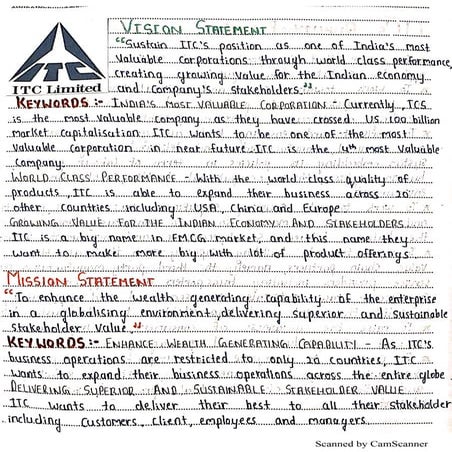 VISION STATEMENT
"Sustain ITC's position as one of India's most
valuable corporations through world class performance,
creating growing value for the Indian economy
and Company's stakeholders."
ITC
ITC Limited
KEYWORDS :- INDIA'S MOST VALUABLE CORPORATION - Currently, TCS
is the most valuable company as they have crossed US 100 billion
market capitalisation ITC wants to be one of the most
valuable corporation in near future ITC is the 4th most valuable
Company.
WORLD CLASS PERFORMANCE - With the world class quality of
products, ITC is able to expand their business across 20
other countries including USA, China and Europe
GROWING VALUE FOR THE INDIAN ECONOMY AND STAKEHOLDERS
ITC is a big name in FMCG market, and this name they
want to make more big with lot of product offerings
MISSION STATEMENT
"To enhance the wealth generating capability of the enterprise
in a globalising environment, delivering superior and sustainable
stakeholder value."
KEYWORDS :- ENHANCE WEALTH GENERATING CAPABILITY - As ITC's
business operations are restricted to only 20 countries, ITC
wants to expand their business operations across the entire globe
DELIVERING SUPERIOR AND SUSTAINABLE STAKEHOLDER VALUE
ITC wants to deliver their best to all their stakeholder
including Customers, client, employees and managers.
Scanned by CamScanner